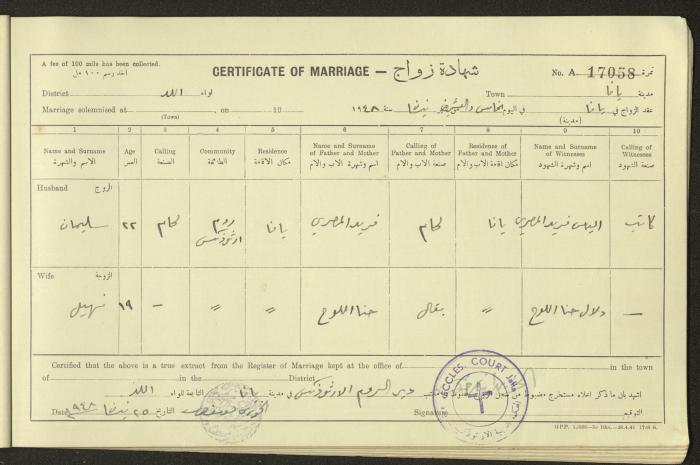 A fee of 100 mils has been collected.
اخذ رسم ١٠٠ مل
CERTIFICATE OF MARRIAGE — شهادة زواج
No. A 17058 نمرة
District اللد لواء
Town يافا مدينة
Marriage solemnised at , on 19
(Town)
عقد الزواج في يافا في اليوم الخامس والعشرين سنة ١٩٤٨
(مدينة)
1 2 3 4 5 6 7 8 9 10
Name and Surname الاسم والشهرة
Age العمر
Calling الصنعة
Community الطائفة
Residence مكان الاقامة
Name and Surname of Father and Mother اسم وشهرة الاب والام
Calling of Father and Mother صنعة الاب والام
Residence of Father and Mother مكان اقامة الاب والام
Name and Surname of Witnesses اسم وشهرة الشهود
Calling of Witnesses صنعة الشهود
Husband الزوج
سليمان ٢٢ لحام روم ارثوذكس يافا فريد المصري لحام يافا الياس فريد المصري كاتب
Wife الزوجة
١٩ — 〃 〃 حنا اللوح بقال 〃 دلال حنا اللوح —
Certified that the above is a true extract from the Register of Marriage kept at the office of in the town
of in the District
اشهد بان ما ذكر اعلاه مستخرج دير الروم الارثوذكس في مدينة يافا التابعة للواء اللد
Date ١٩٤٨ ٢٥ التاريخ
Signature التوقيع
ECCLES. COURT Jaffa